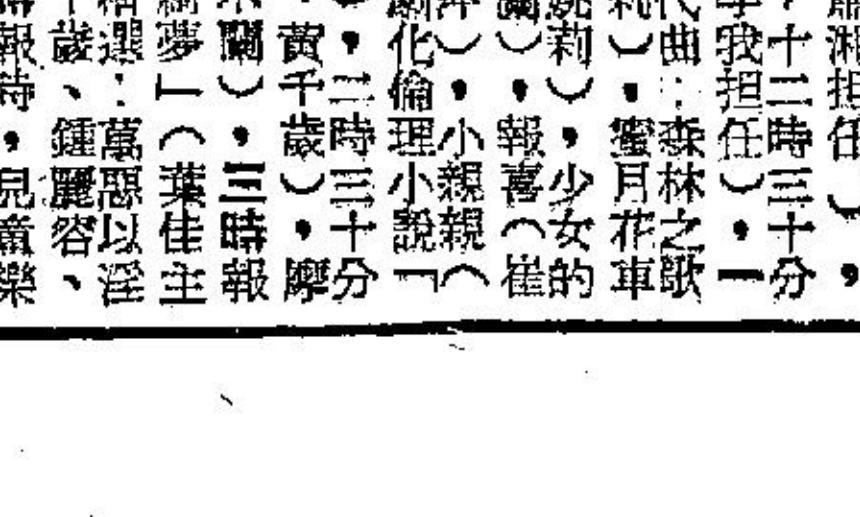 湘担任），
，十二時三十分
我担任），一
代曲：森林之歌
莉），蜜月花車
莉），少女的
），報喜（崔
），小親親（
化倫理小說「
，二時三十分
黃千歲），摩
蘭），三時報
夢」（葉佳主
選：萬惡以淫
歲、鍾麗容、
報時，兒童樂